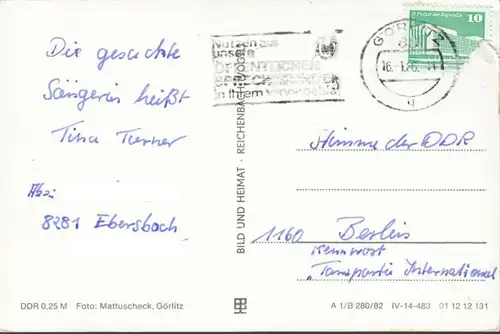 Die gesuchte
Sängerin heißt
Tina Turner
Abs.:
8281 Ebersbach
DDR 0,25 M Foto: Mattuscheck, Görlitz
BILD UND HEIMAT · REICHENBACH (VOGTL)
Nutzen Sie
unsere
ÖFFENTLICHEN
in Ihrem
GÖRLITZ
10
Stimme der DDR
1160 Berlin
Kennwort
"Tanzparty International
A 1/B 280/82 IV-14-483 01 12 12 131